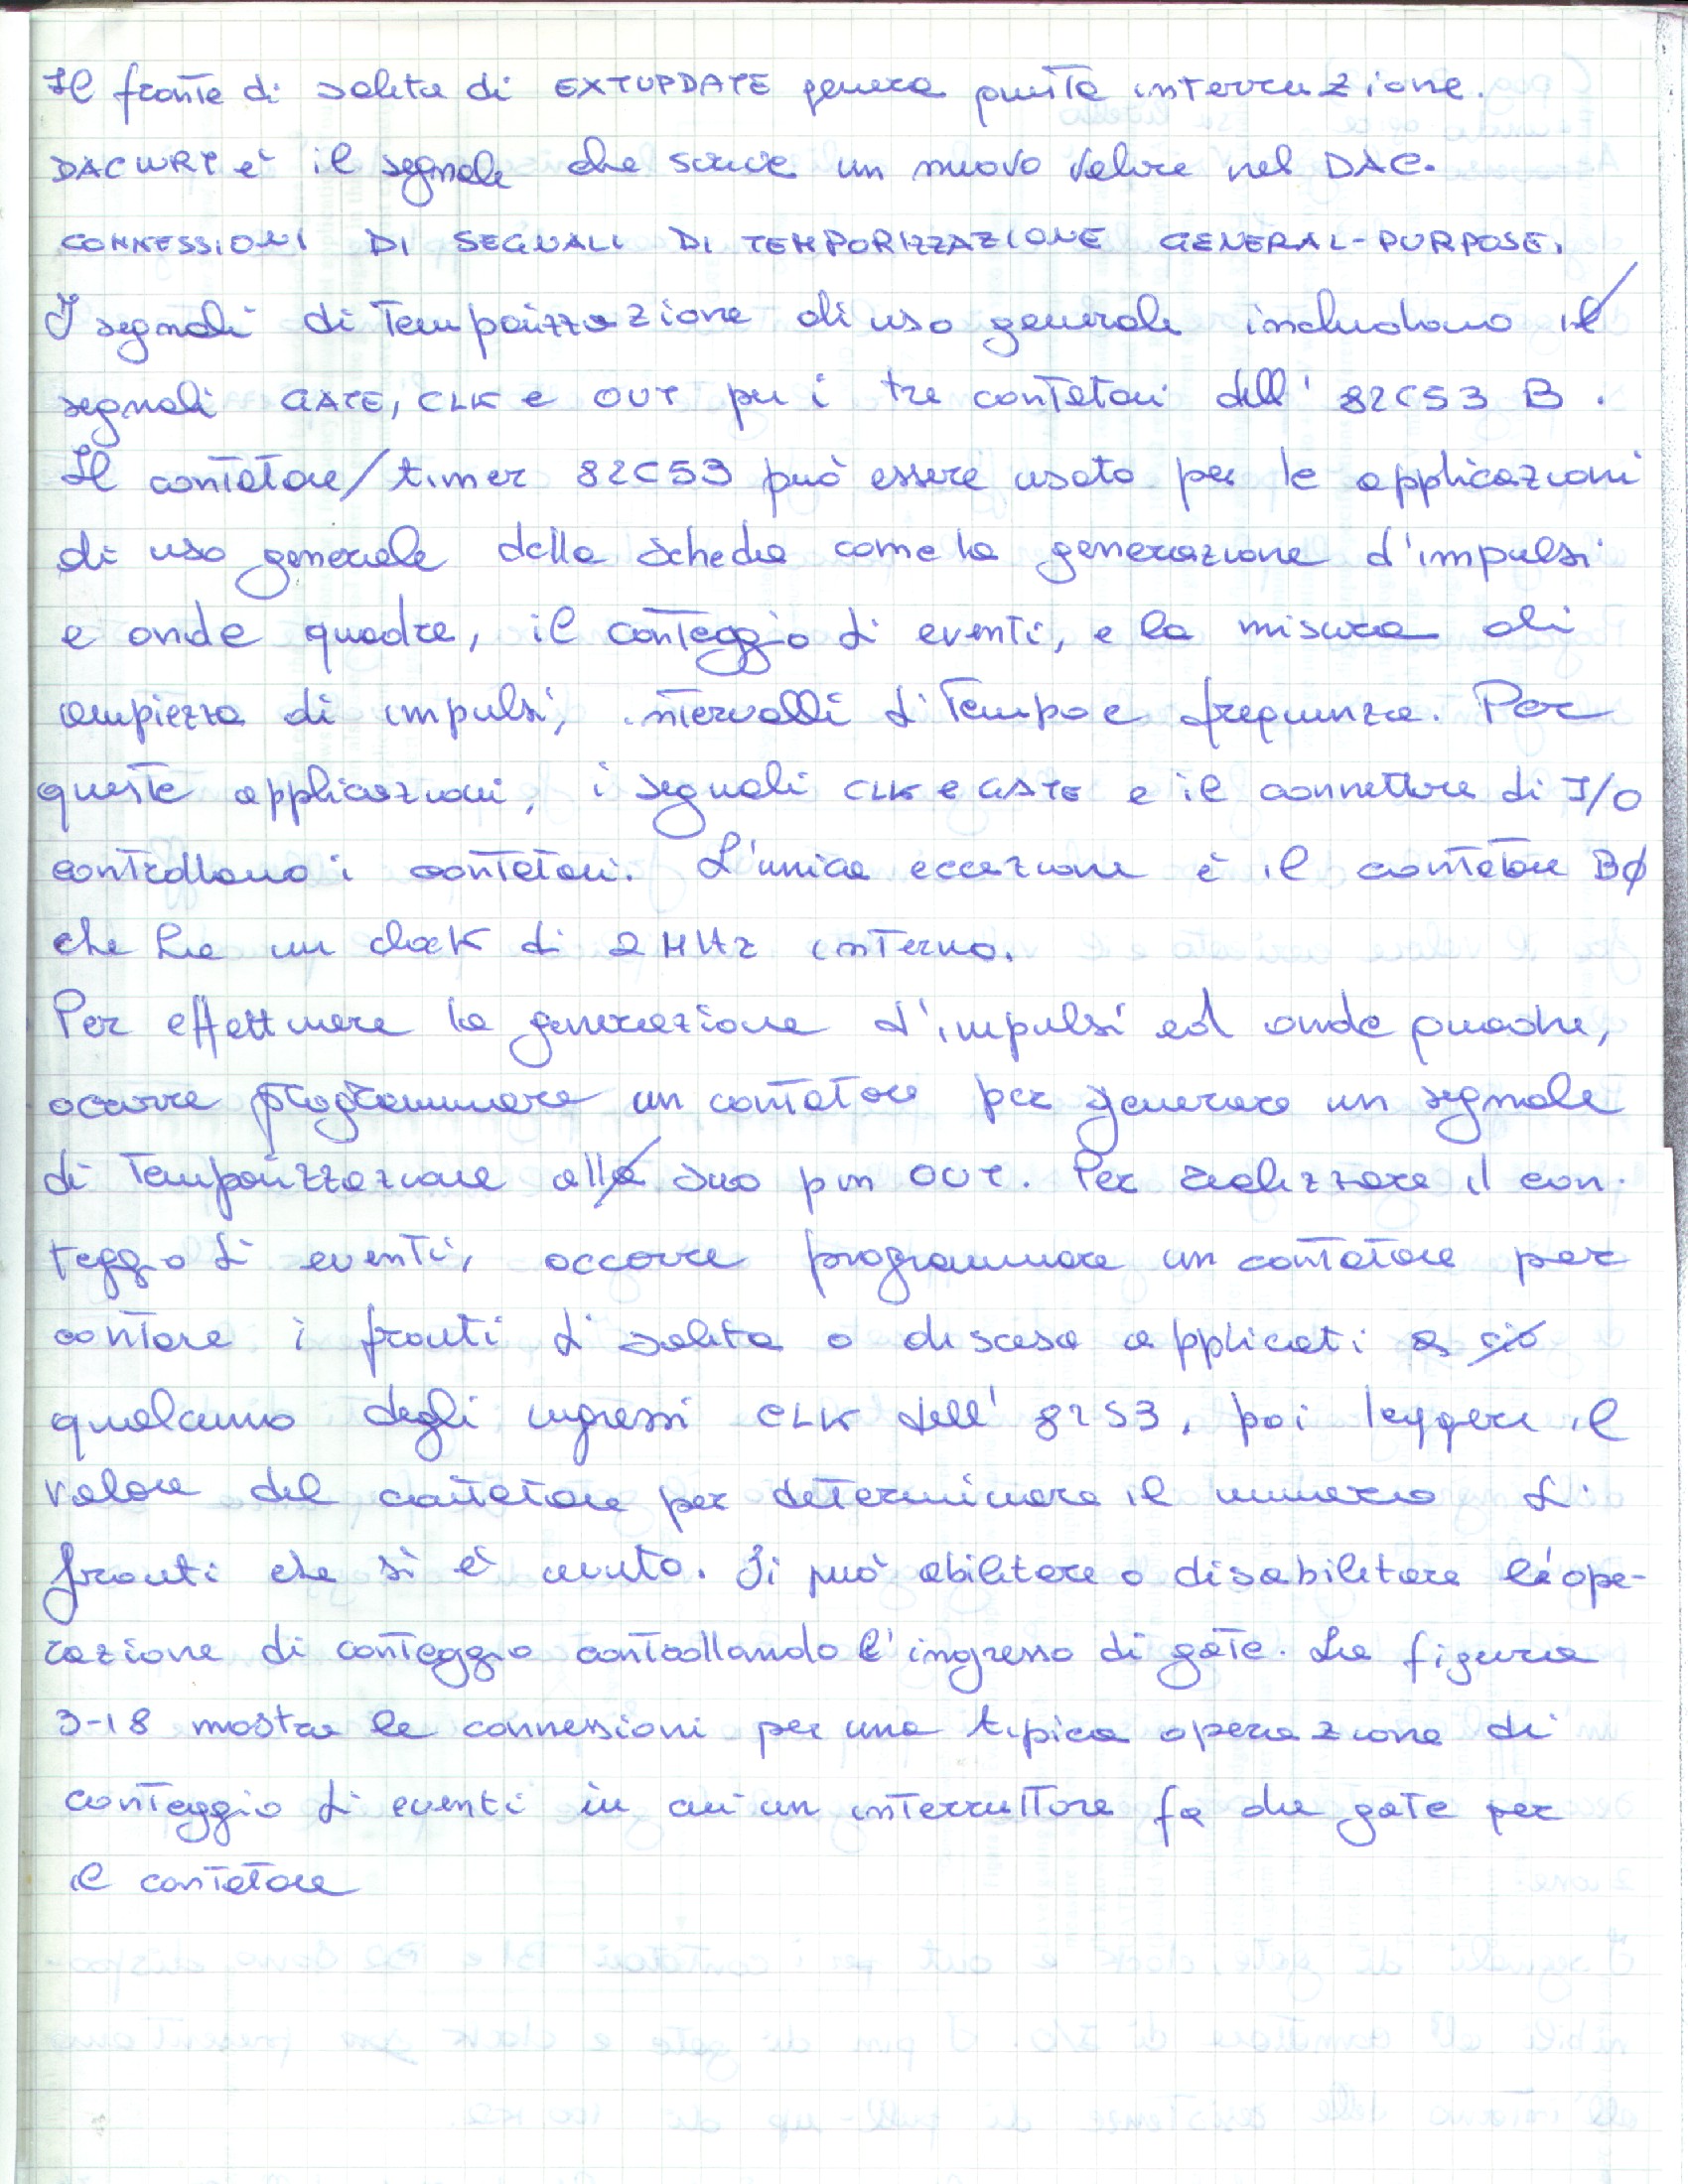 Il fronte di salita di EXTUPDATE genera questa interruzione.
DACWRT è il segnale che scrive un nuovo valore nel DAC.
CONNESSIONI DI SEGNALI DI TEMPORIZZAZIONE GENERAL-PURPOSE.
I segnali di temporizzazione di uso generale includono i
segnali GATE, CLK e OUT per i tre contatori dell' 82C53 B.
Il contatore/timer 82C53 può essere usato per le applicazioni
di uso generale della scheda come la generazione d'impulsi
e onde quadre, il conteggio di eventi, e la misura di
ampiezza di impulsi, intervalli di tempo e frequenza. Per
queste applicazioni, i segnali CLK e GATE e il connettore di I/O
controllano i contatori. L'unica eccezione è il contatore B0
che ha un clock di 2 MHz interno.
Per effettuare la generazione d'impulsi ed onde quadre,
occorre programmare un contatore per generare un segnale
di temporizzazione al suo pin OUT. Per realizzare il con-
teggio di eventi, occorre programmare un contatore per
contare i fronti di salita o discesa applicati a
qualcuno degli ingressi CLK dell' 8253, poi leggere il
valore del contatore per determinare il numero di
fronti che si è avuto. Si può abilitare o disabilitare l'ope-
razione di conteggio controllando l'ingresso di gate. La figura
3-18 mostra le connessioni per una tipica operazione di
conteggio di eventi in cui un interruttore fa da gate per
il contatore